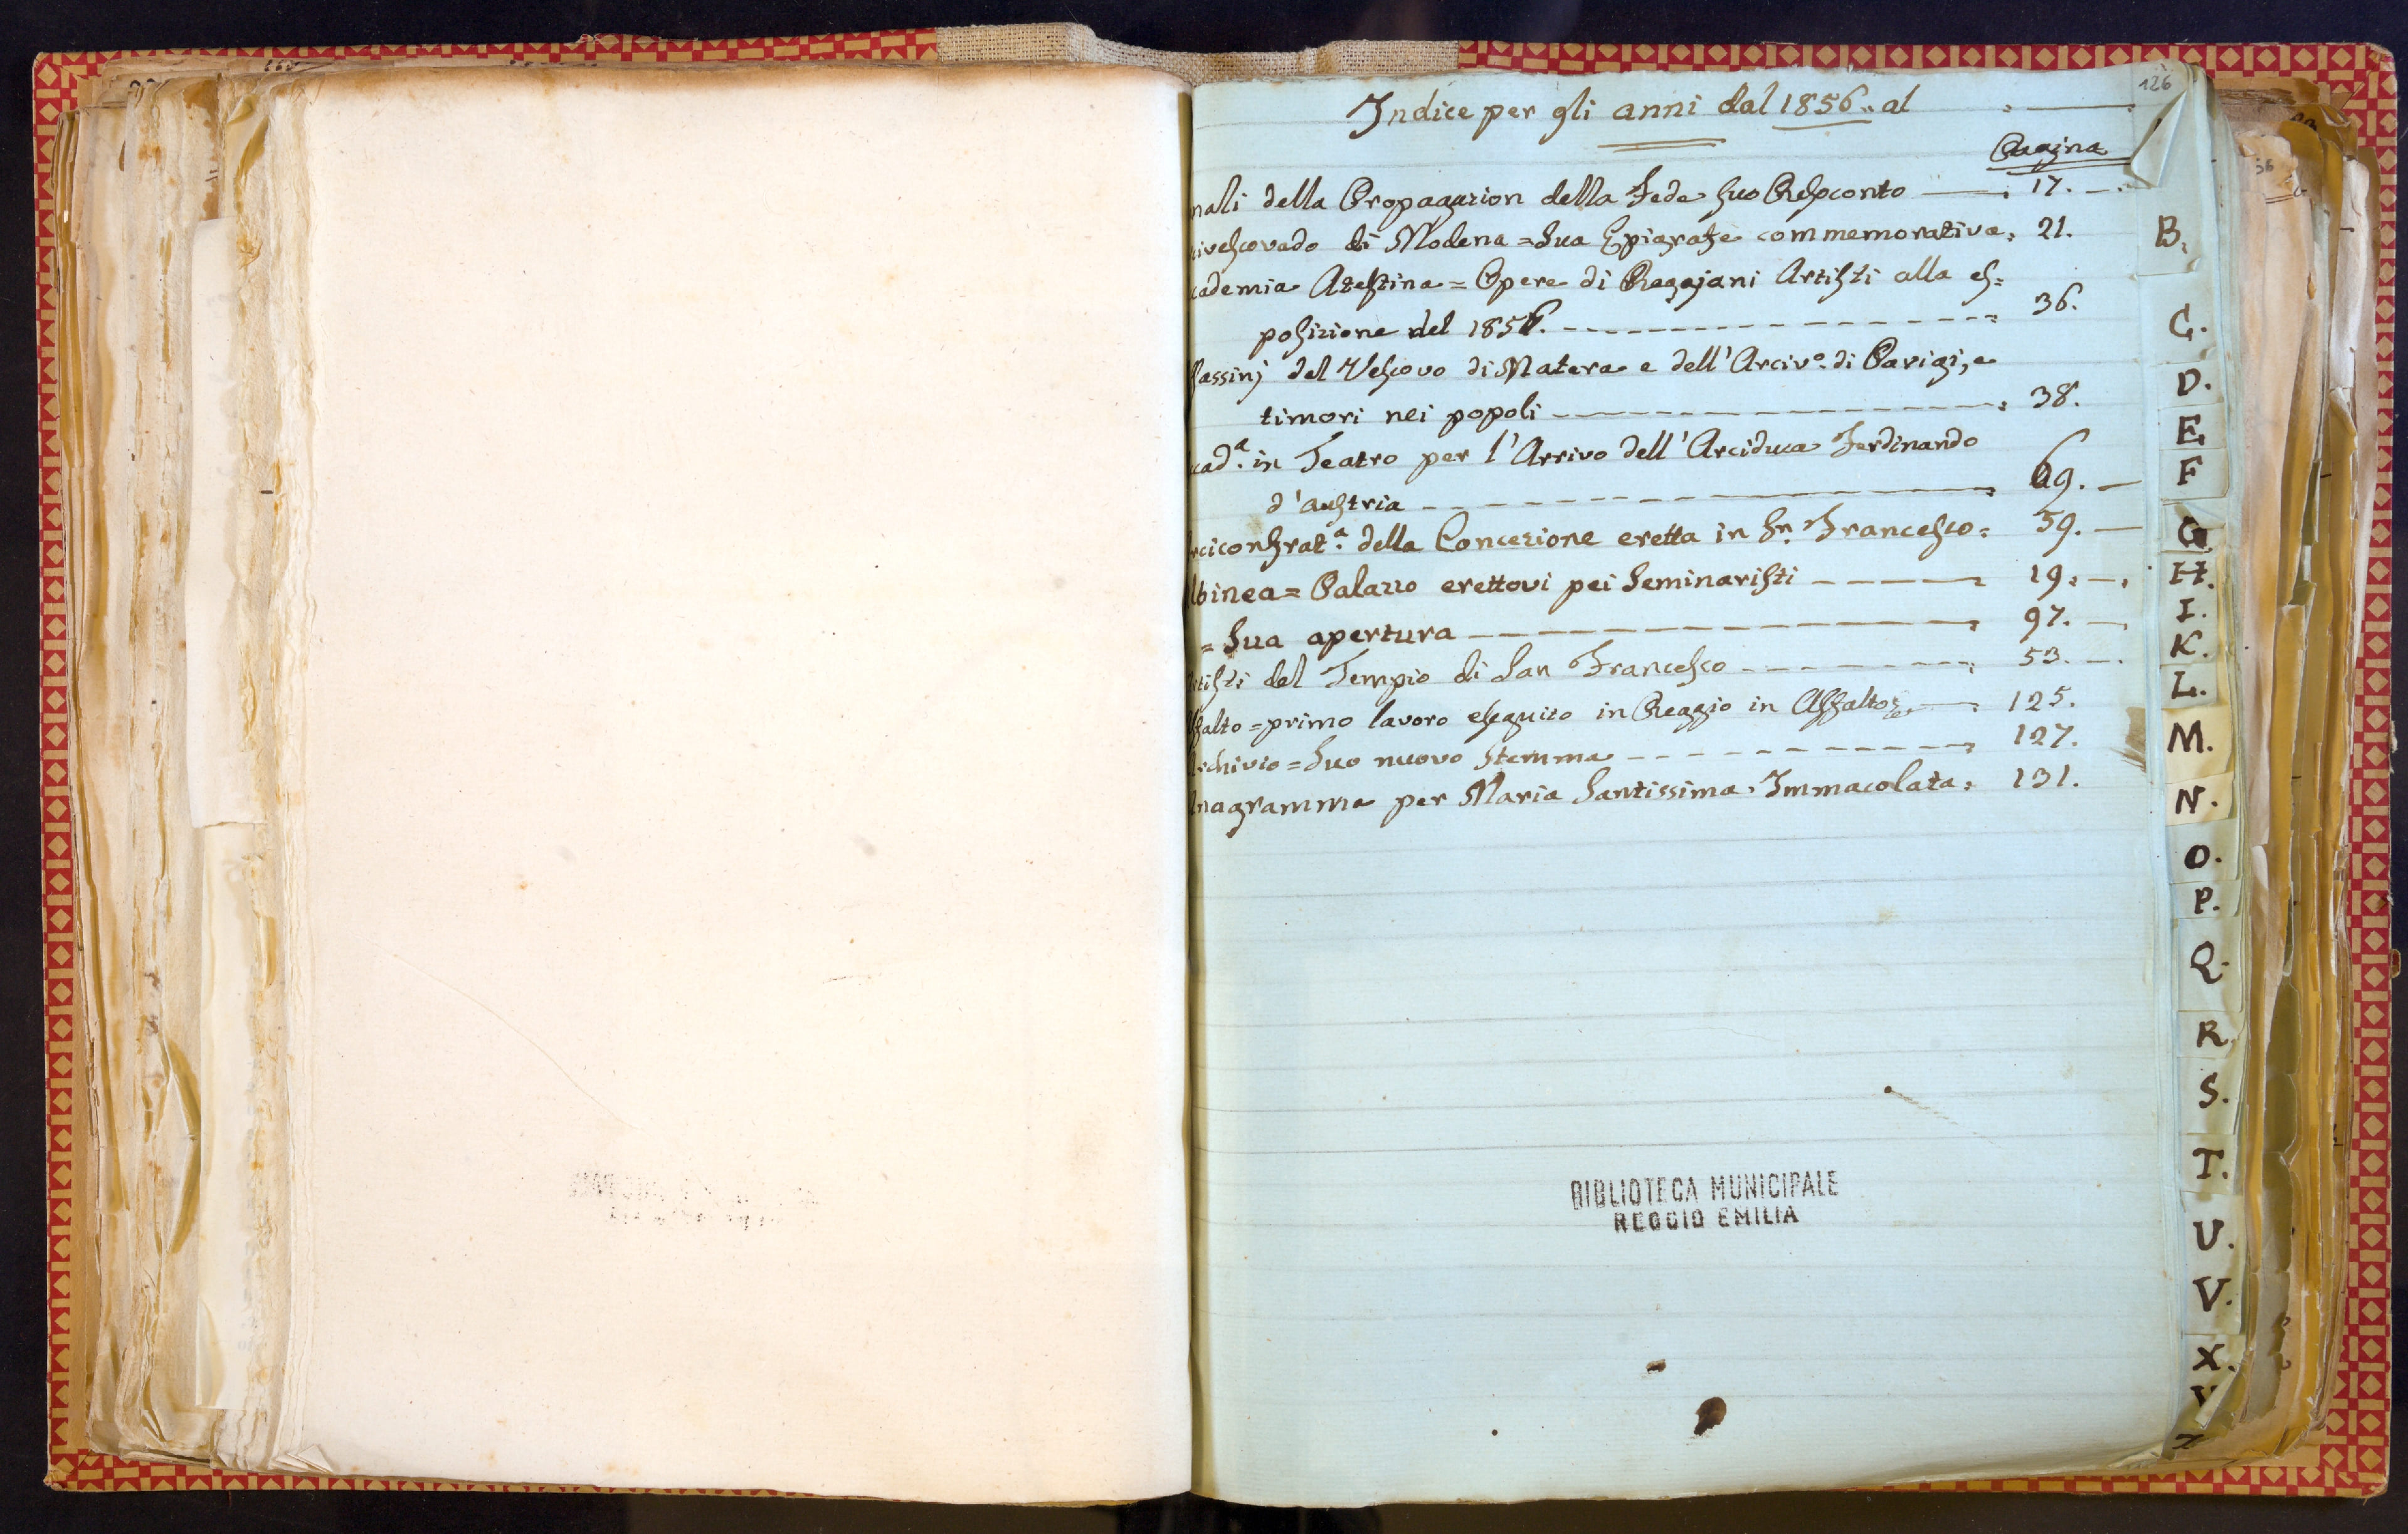 126
Indice per gli anni dal 1856. al
Pagina
nali della Propagazion della Fede suo Resoconto 17.
ivescovado di Modena = Sua Epigrafe commemorativa, 21.
cademia Atestina = Opere di Reggiani Artisti alla es=
posizione del 1856. 36.
ssassinj del Vescovo di Matera e dell'Arciv.o di Parigi, e
timori nei popoli 38.
cad.a in Teatro per l'Arrivo dell'Arciduca Ferdinando
d'austria 69.
rciconfrat.a della Concezione eretta in Sn. Francesco= 59.
lbinea = Palazzo erettovi pei Seminaristi 19.
= Sua apertura 97.
rtisti del Tempio di San Francesco 53.
sfalto = primo lavoro eseguito in Reggio in Asfalto 125.
rchivio = Suo nuovo Stemma 127.
nagramma per Maria Santissima Immacolata, 131.
B.
C.
D.
E
F
G
H.
I.
K.
L.
M.
N.
O.
P.
Q.
R.
S.
T.
U.
V.
X.
BIBLIOTECA MUNICIPALE
REGGIO EMILIA